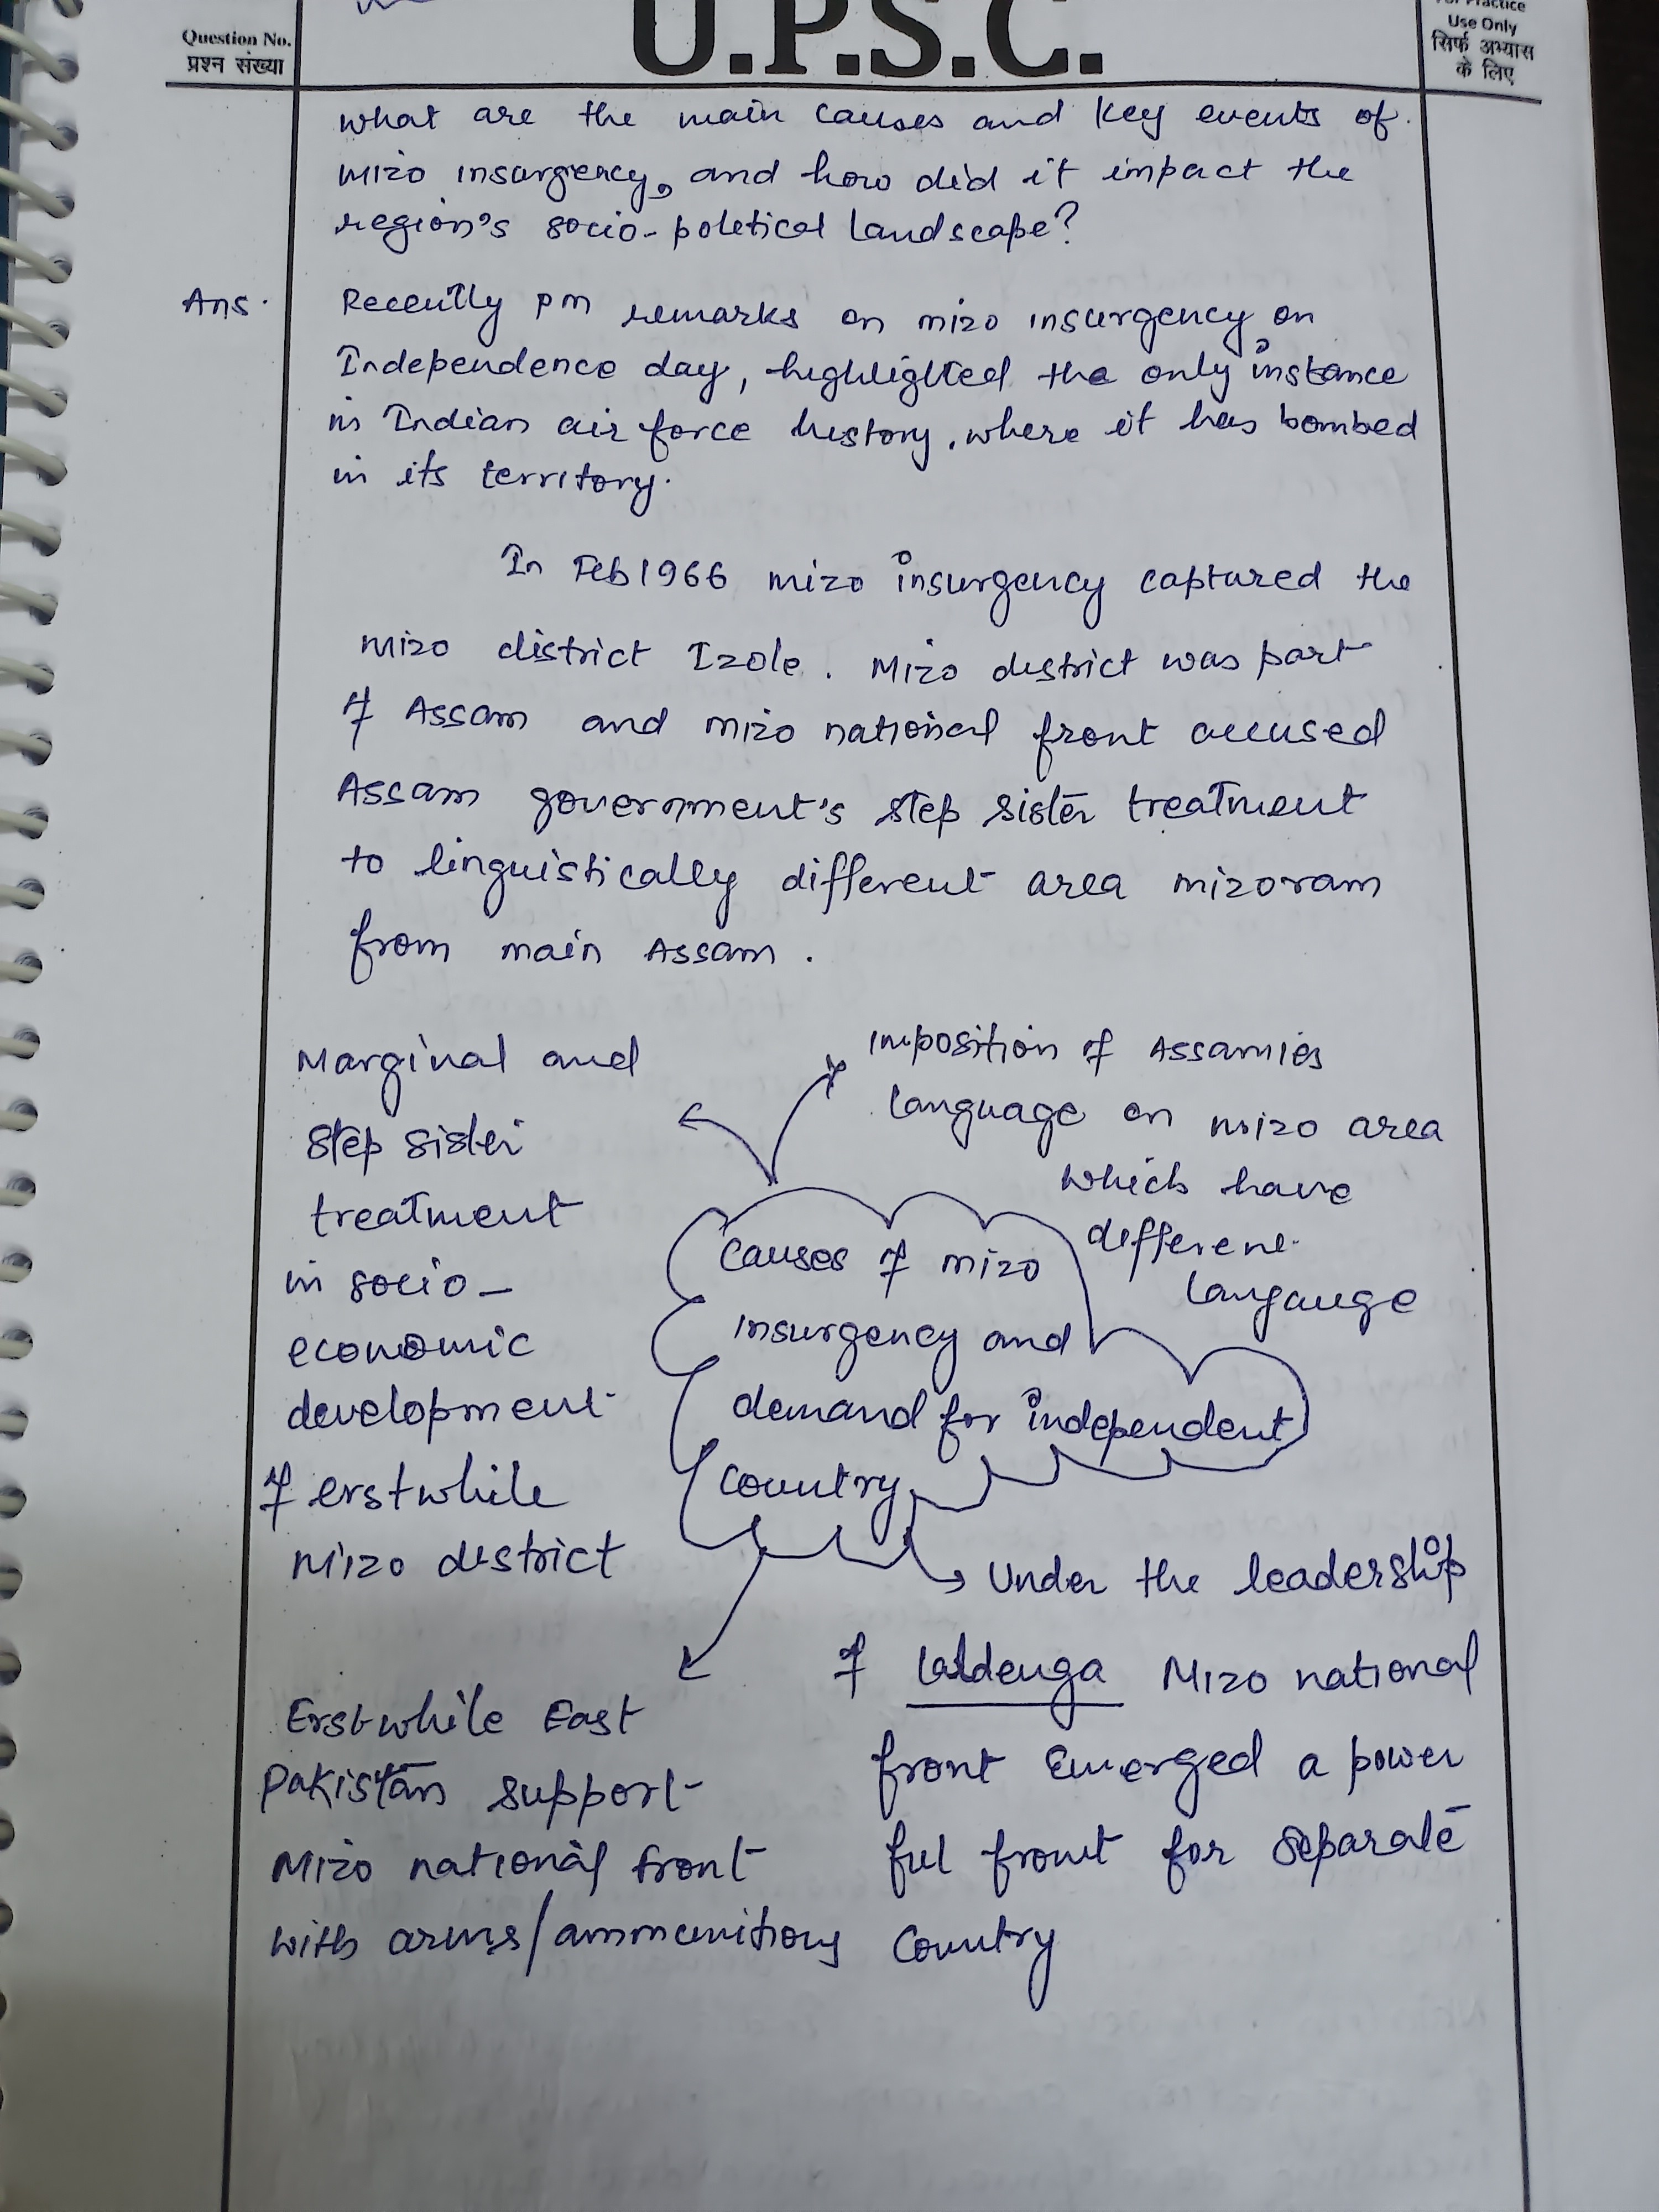 Question No.
प्रश्न संख्या
U.P.S.C.
For Practice
Use Only
सिर्फ अभ्यास
के लिए
what are the main causes and key events of
mizo insurgency, and how did it impact the
region's socio-political landscape?
Ans.
Recently pm remarks on mizo insurgency on
Independence day, highlighted the only instance
in Indian air force history, where it has bombed
in its territory.
In Feb 1966 mizo insurgency captured the
mizo district Izole. Mizo district was part
of Assam and mizo national front accused
Assam government's step sister treatment
to linguistically different area mizoram
from main Assam.
Marginal and
step sister
treatment
in socio-
economic
development
of erstwhile
Mizo district
imposition of Assamies
language on mizo area
which have
differene
langauge
causes of mizo
insurgency and
demand for independent
country
Erstwhile East
Pakistan support
Mizo national front
with arms/ammunitions
Under the leadership
of Laldenga Mizo national
front Emerged a power
ful front for separate
country